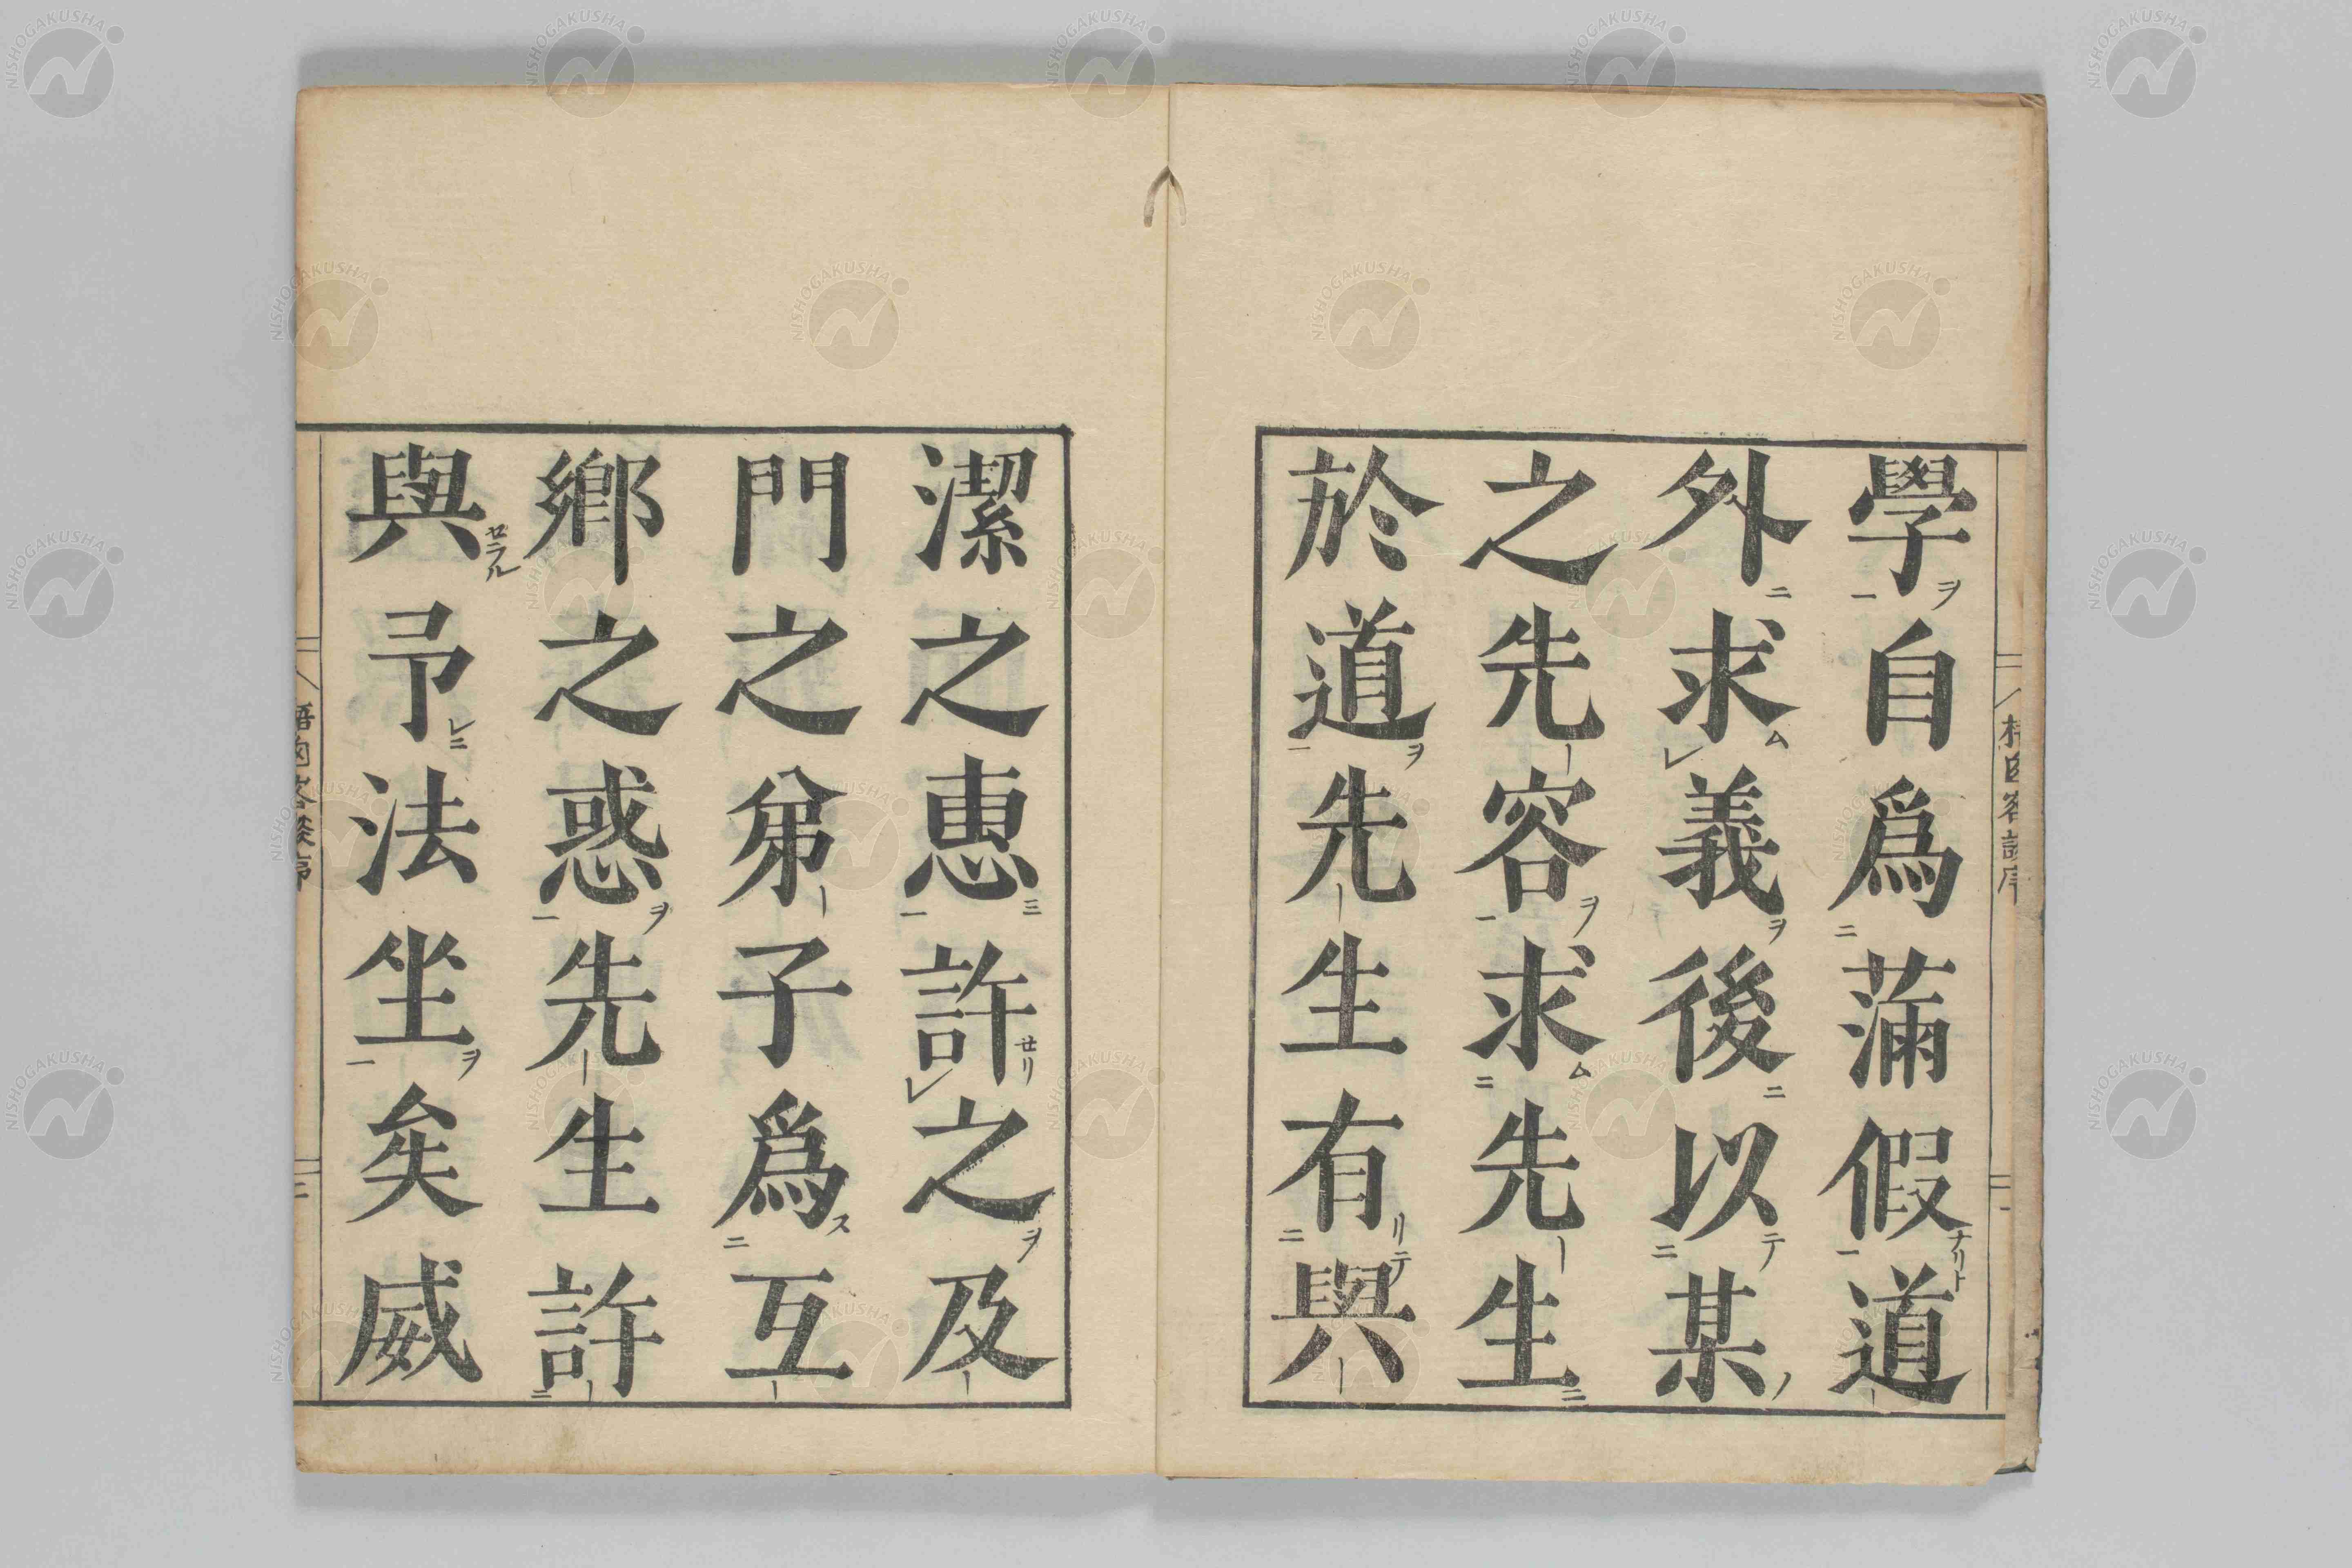 學自爲滿假道
外求義後以某
之先容求先生
於道先生有與
潔之惠許之及
門之弟子爲互
鄉之惑先生許
與予法坐矣威
NISHOGAKUSHA